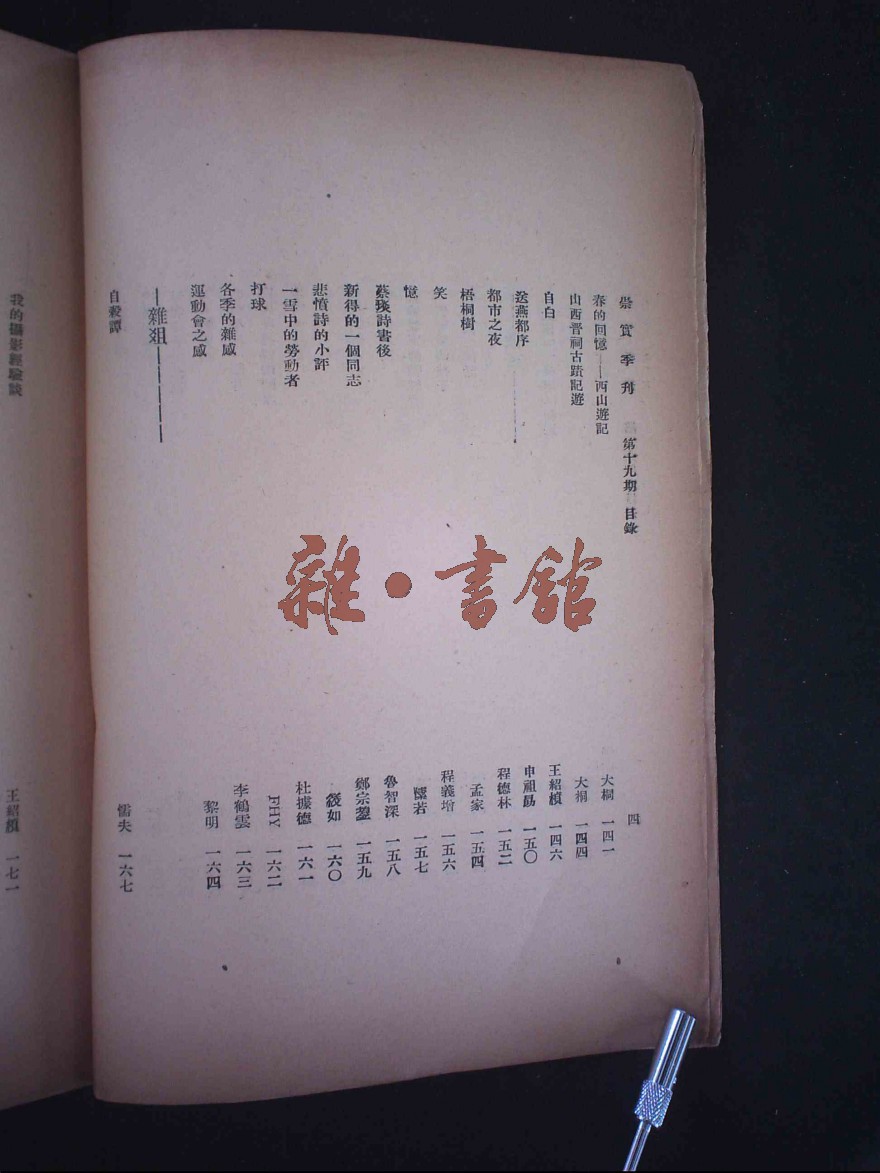 崇實季刋 第十九期 目錄 四
春的回憶——西山遊記 大桐 一四一
山西晋祠古蹟記遊 大桐 一四四
自白 王紹楨 一四六
送燕都序 申祖 一五〇
都市之夜 程德林 一五二
梧桐樹 孟家 一五四
笑 程義增 一五六
憶 若 一五七
蔡琰詩書後 魯智深 一五八
新得的一個同志 鄭宗鎏 一五九
悲憤詩的小評 筱如 一六〇
一雪中的勞動者 杜據德 一六一
打球 FHY 一六二
各季的雜感 李鶴雲 一六三
運動會之感 黎明 一六四
—雜俎—————
自穀譚 懦夫 一六七
我的攝影經驗談 王紹楨 一七一
雜·書館